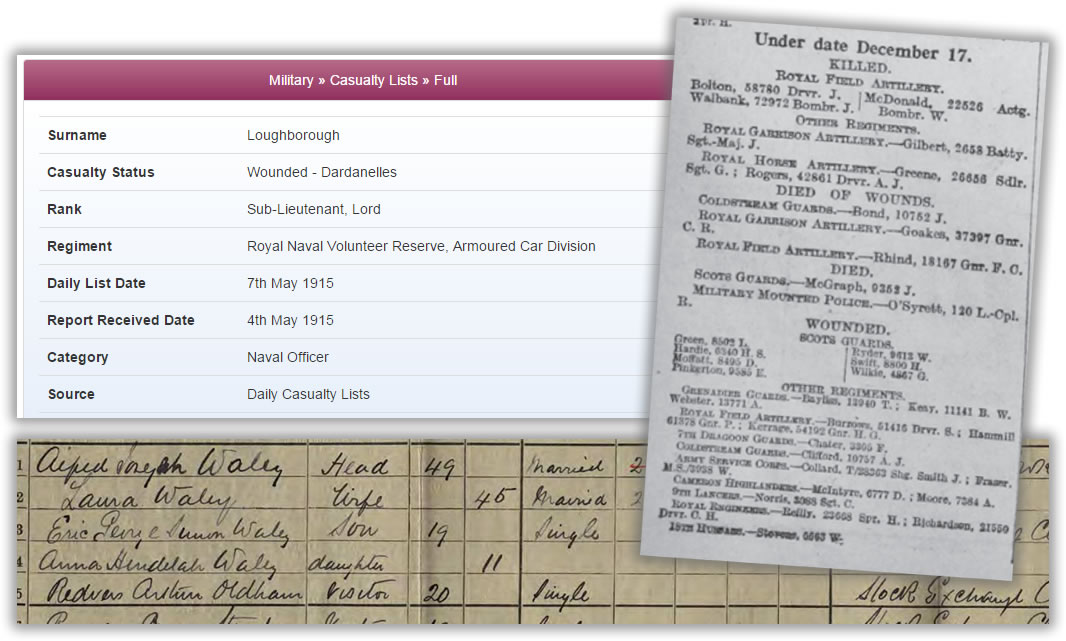 Military » Casualty Lists » Full
Surname Loughborough
Casualty Status Wounded - Dardanelles
Rank Sub-Lieutenant, Lord
Regiment Royal Naval Volunteer Reserve, Armoured Car Division
Daily List Date 7th May 1915
Report Received Date 4th May 1915
Category Naval Officer
Source Daily Casualty Lists
Spr. H.
Under date December 17.
KILLED.
ROYAL FIELD ARTILLERY.
Bolton, 58780 Drvr. J. McDonald, 22526 Actg.
Walbank, 72972 Bombr. J. Bombr. W.
OTHER REGIMENTS.
ROYAL GARRISON ARTILLERY.—Gilbert, 2658 Batty.
Sgt.-Maj. J.
ROYAL HORSE ARTILLERY.—Greene, 26656 Sdlr.
Sgt. G. ; Rogers, 42861 Drvr. A. J.
DIED OF WOUNDS.
COLDSTREAM GUARDS.—Bond, 10752 J.
ROYAL GARRISON ARTILLERY.—Goakes, 37397 Gnr.
C. R.
ROYAL FIELD ARTILLERY.—Rhind, 18167 Gnr. F. C.
DIED.
SCOTS GUARDS.—McGraph, 9352 J.
MILITARY MOUNTED POLICE.—O'Syrett, 120 L.-Cpl.
R.
WOUNDED.
SCOTS GUARDS.
Green, 8502 I. Ryder, 9612 W.
Hardie, 6340 H. S. Swift, 8800 H.
Moffatt, 8495 D. Wilkie, 4867 G.
Pinkerton, 9585 E.
OTHER REGIMENTS.
GRENADIER GUARDS.—Bayliss, 13940 T. ; Keay, 11141 B. W.
Webster, 13771 A.
ROYAL FIELD ARTILLERY.—Burrows, 51416 Drvr. S. ; Hammill
61378 Gnr. P. ; Kerrage, 54192 Gnr. H. G.
7TH DRAGOON GUARDS.—Chater, 3305 F.
COLDSTREAM GUARDS.—Clifford, 10757 A. J.
ARMY SERVICE CORPS.—Collard, T/28363 Shg. Smith J. ; Fraser,
M.S./3938 W.
CAMERON HIGHLANDERS.—McIntyre, 6777 D. ; Moore, 7384 A.
9TH LANCERS.—Norris, 3068 Sgt. C.
ROYAL ENGINEERS.—Reilly, 23668 Spr. H. ; Richardson, 21550
Drvr. C. H.
18TH HUSSARS.—Stevens, 6663 W.
1 Alfred Joseph Waley Head 49 Married 2
2 Laura Waley Wife 45 Married 2
3 Eric George Simon Waley Son 19 Single
4 Anna Hendelah Waley daughter 11
5 Redvers Arthur Oldham Visitor 20 Single Stock Exchange C